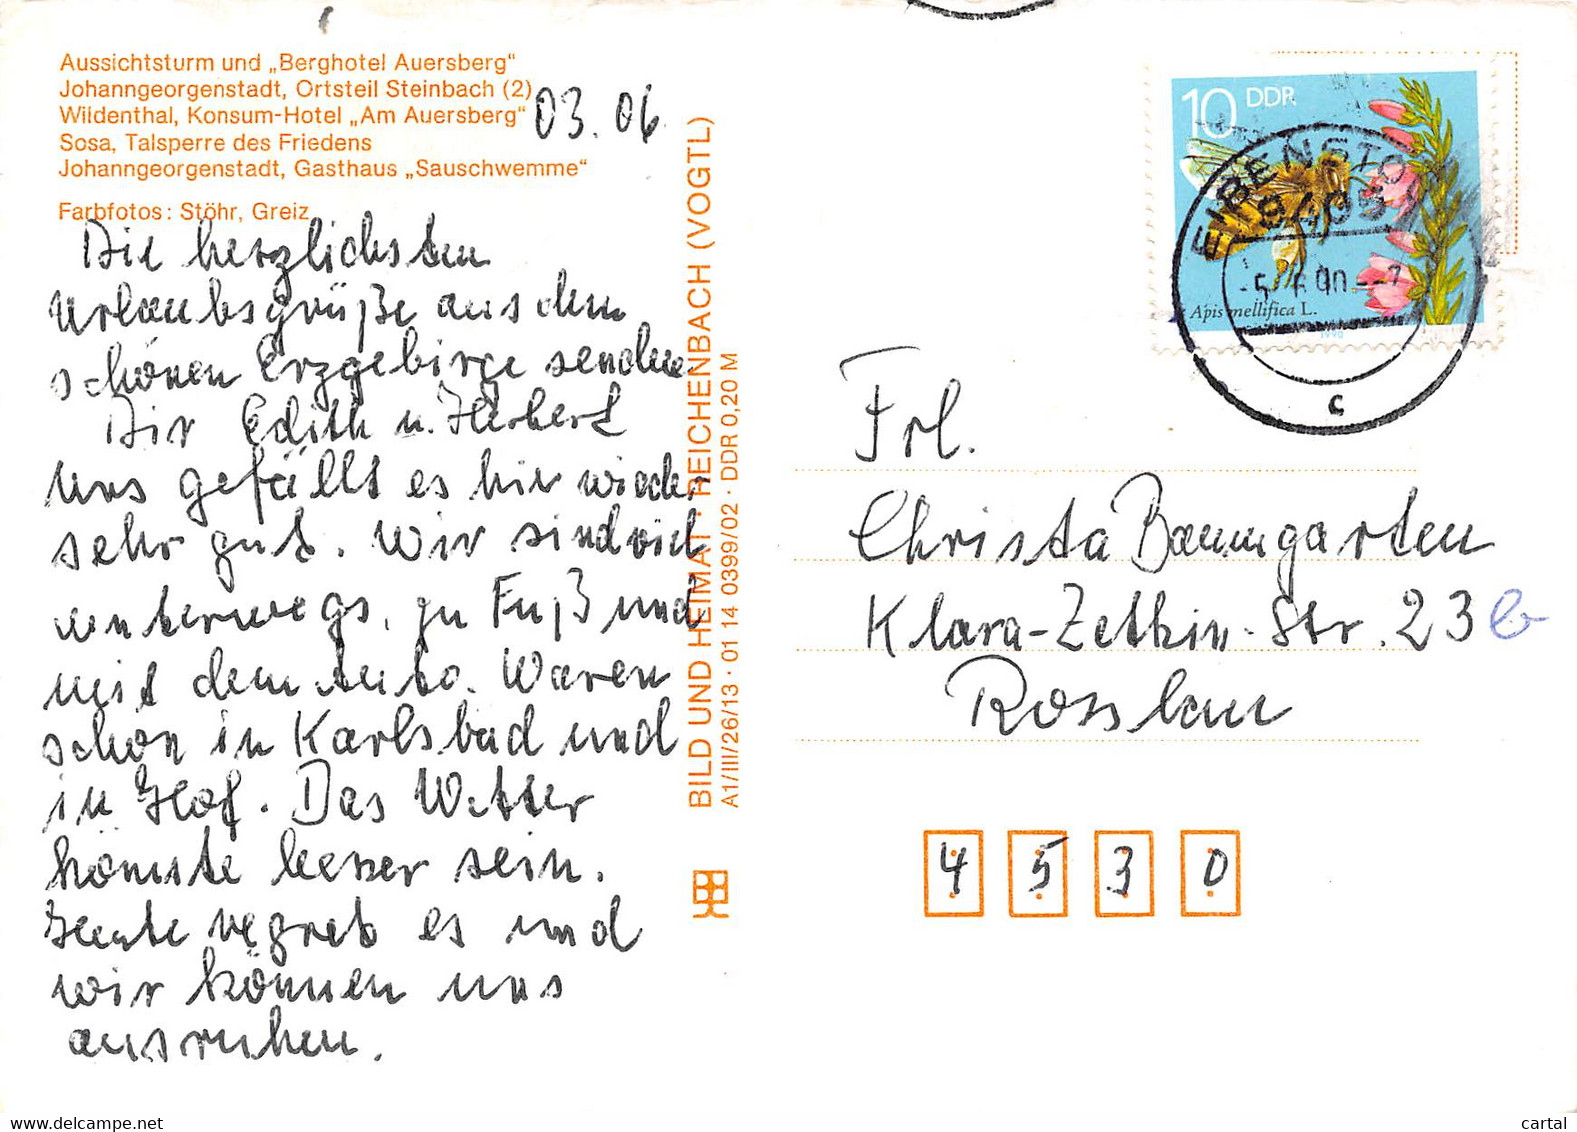 Aussichtsturm und „Berghotel Auersberg“
Johanngeorgenstadt, Ortsteil Steinbach (2)
Wildenthal, Konsum-Hotel „Am Auersberg“
Sosa, Talsperre des Friedens
Johanngeorgenstadt, Gasthaus „Sauschwemme“
Farbfotos: Stöhr, Greiz
03.06
Die herzlichsten
Urlaubsgrüße aus dem
schönen Erzgebirge senden
Dir Edith u. Herbert
Uns gefällt es hier wieder
sehr gut. Wir sind viel
unterwegs, zu Fuß und
mit dem Auto. Waren
schon in Karlsbad und
in Hof. Das Wetter
könnte besser sein.
Heute regnet es und
wir können uns
ausruhen.
BILD UND HEIMAT · REICHENBACH (VOGTL)
A1/III/26/13 · 01 14 0399/02 · DDR 0,20 M
10 DDR
Apis mellifica L.
1990
EIBENSTO
9405
-5.6.90--7
c
Frl.
Christa Baumgarten
Klara-Zetkin-Str. 23 b
Rosslau
4 5 3 0
cartal